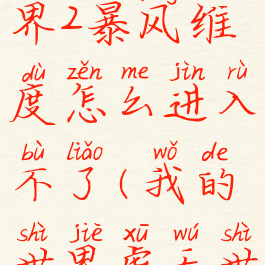 界2暴风维
dù zěn me jìn rù
度怎么进入
bù liǎo wǒ de
不了(我的
shì jiè xū wú shì
世界虚无世